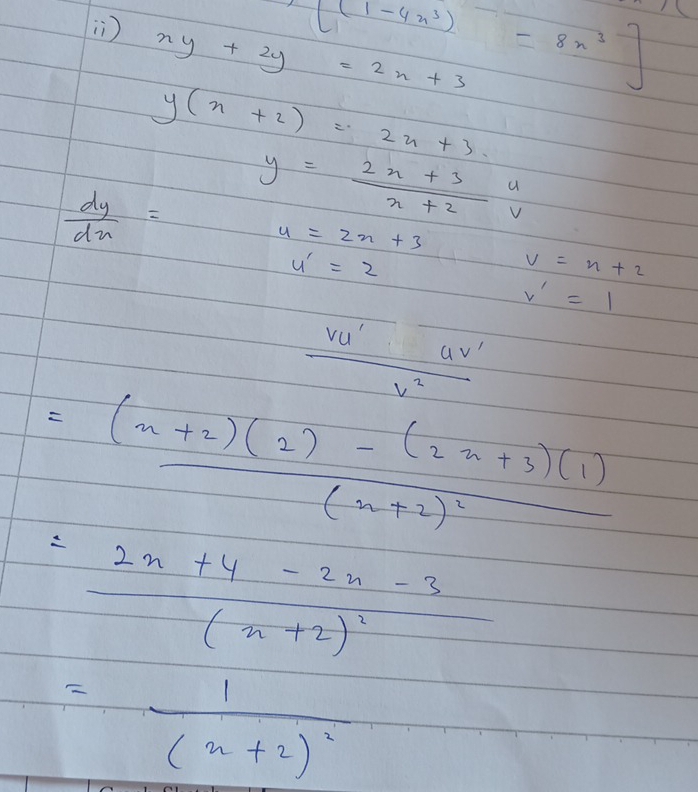 (1 - 4x³) = 8x³ ]
ii) xy + 2y = 2x + 3
y(x + 2) = 2x + 3.
y = (2x + 3)/(x + 2) u/v
dy/dx =
u = 2x + 3 v = x + 2
u' = 2 v' = 1
(vu' uv')/v²
= ((x + 2)(2) - (2x + 3)(1))/(x + 2)²
= (2x + 4 - 2x - 3)/(x + 2)²
= 1/(x + 2)²